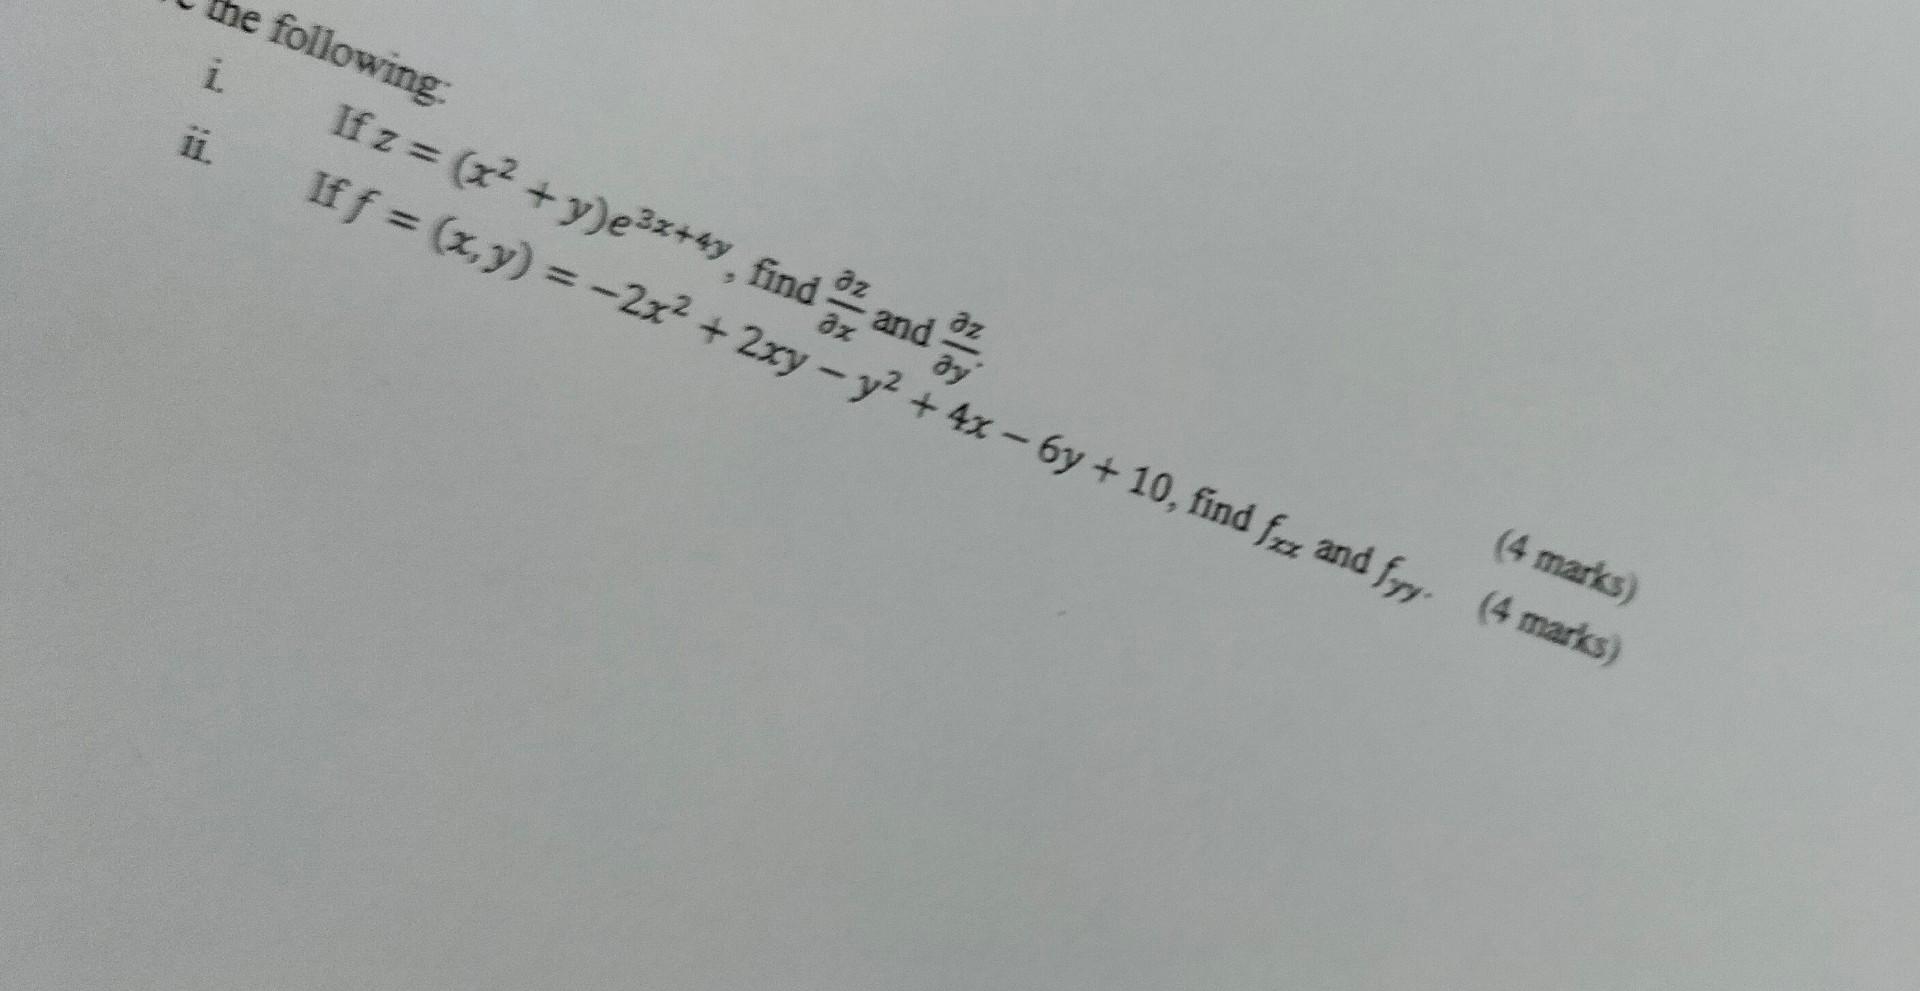 the following:
i. If z = (x² + y)e³ˣ⁺⁴ʸ, find ∂z/∂x and ∂z/∂y. (4 marks)
ii. If f = (x, y) = −2x² + 2xy − y² + 4x − 6y + 10, find fₓₓ and f_yy. (4 marks)